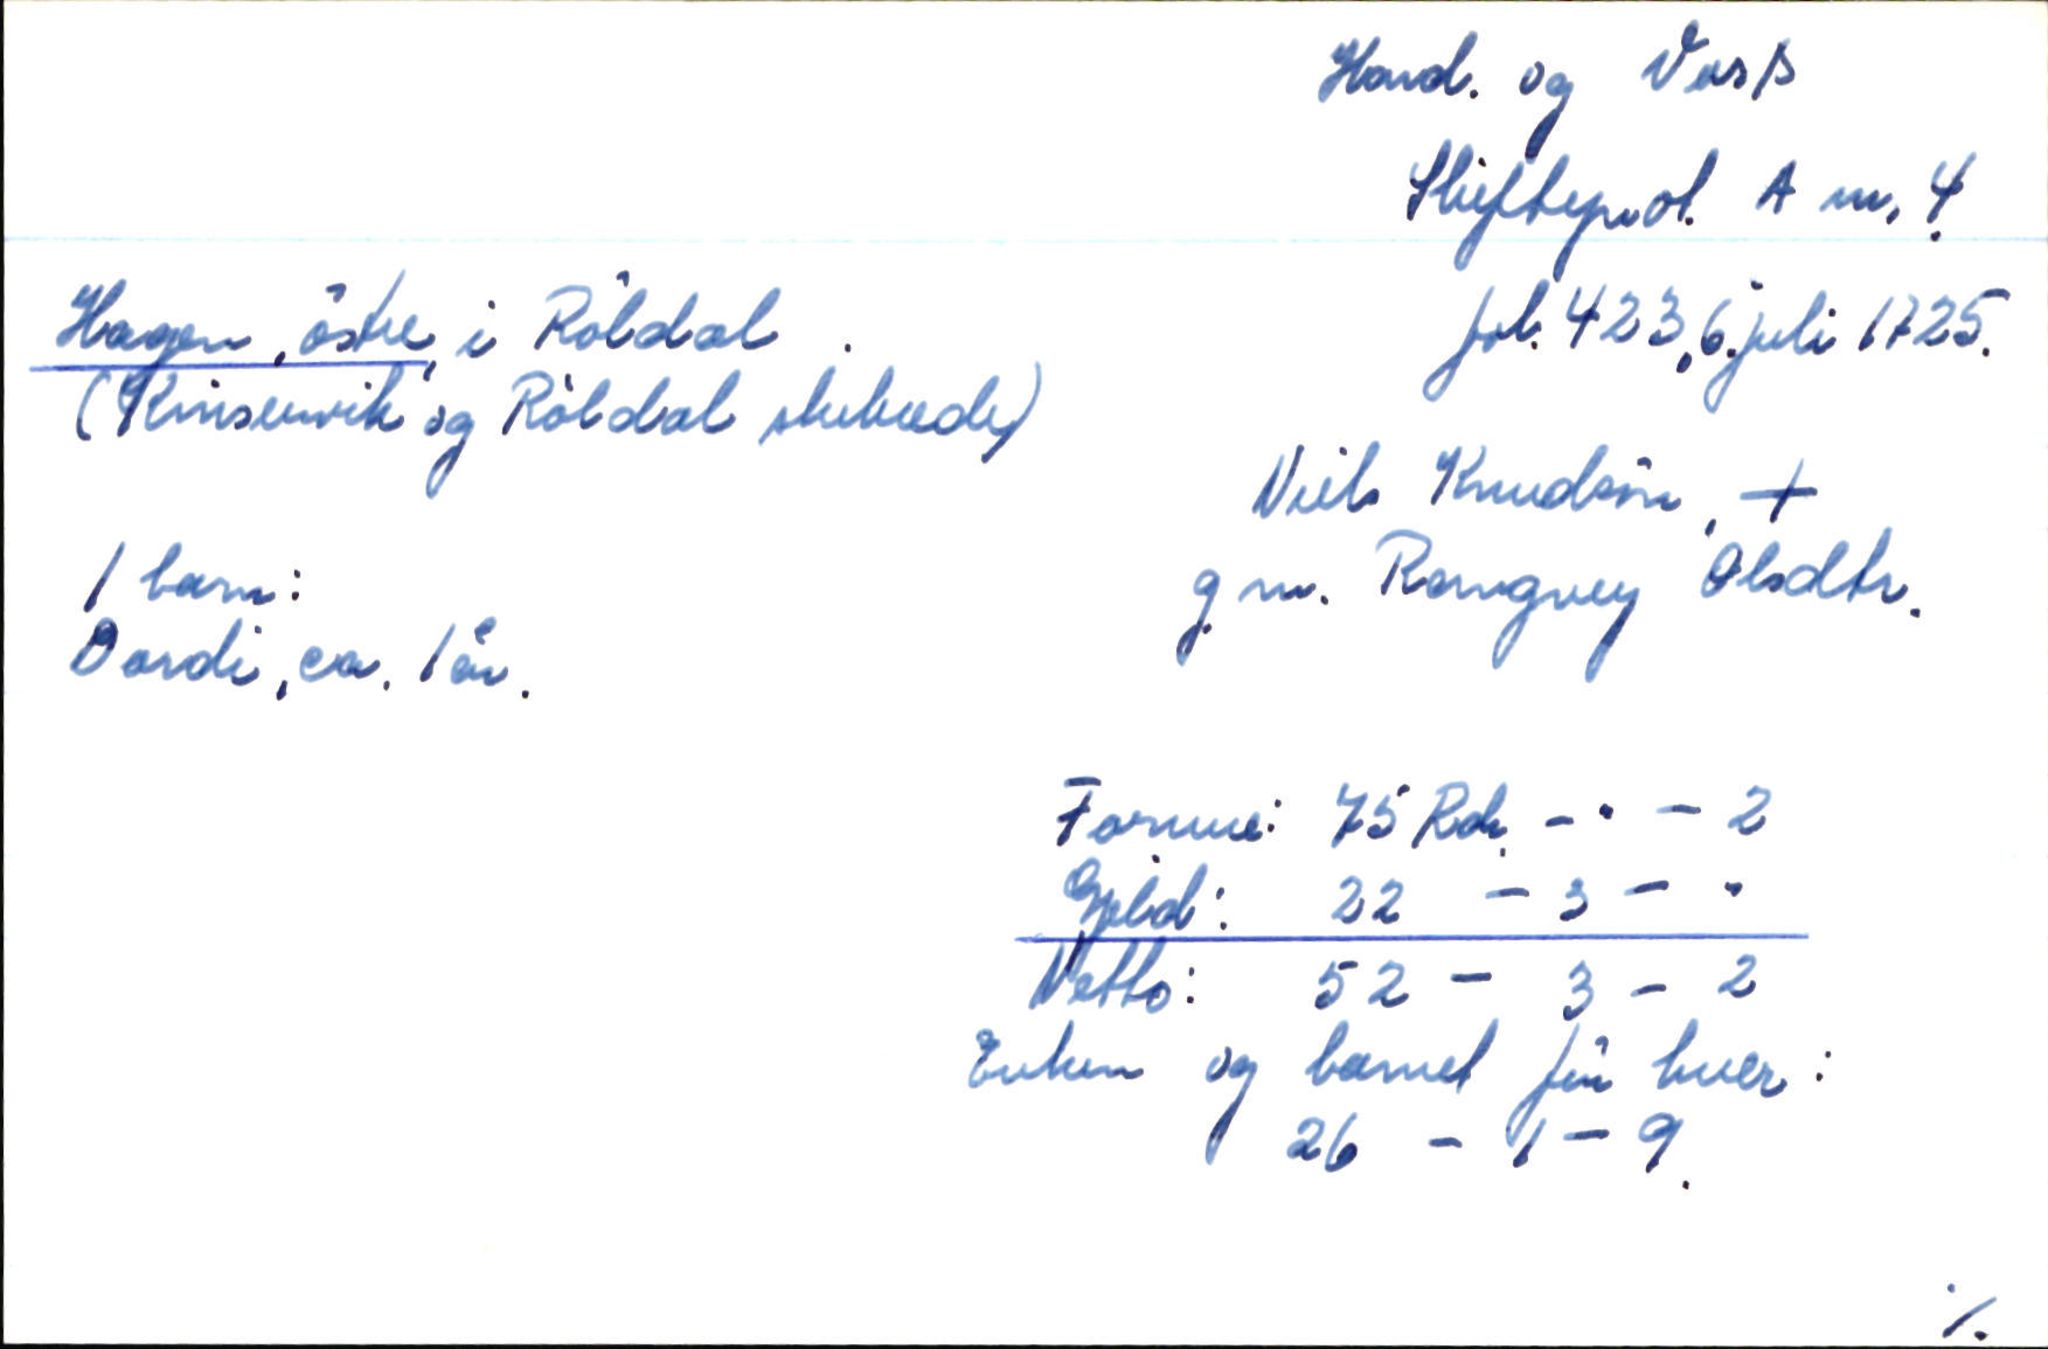 Hard. og Voss
Skifteprot. A nr. 4
fol. 423, 6. juli 1725.
Hagen, östre, i Röldal.
(Kinservik og Röldal skibrede)
Niels Knudsön, +
g.m. Rangvey Olsdtr.
1 barn:
Dordi, ca. 1 år.
Formue: 75 Rdr. - " - 2
Gjeld: 22 - 3 - "
Netto: 52 - 3 - 2
Enken og barnet får hver:
26 - 1 - 9.
./.